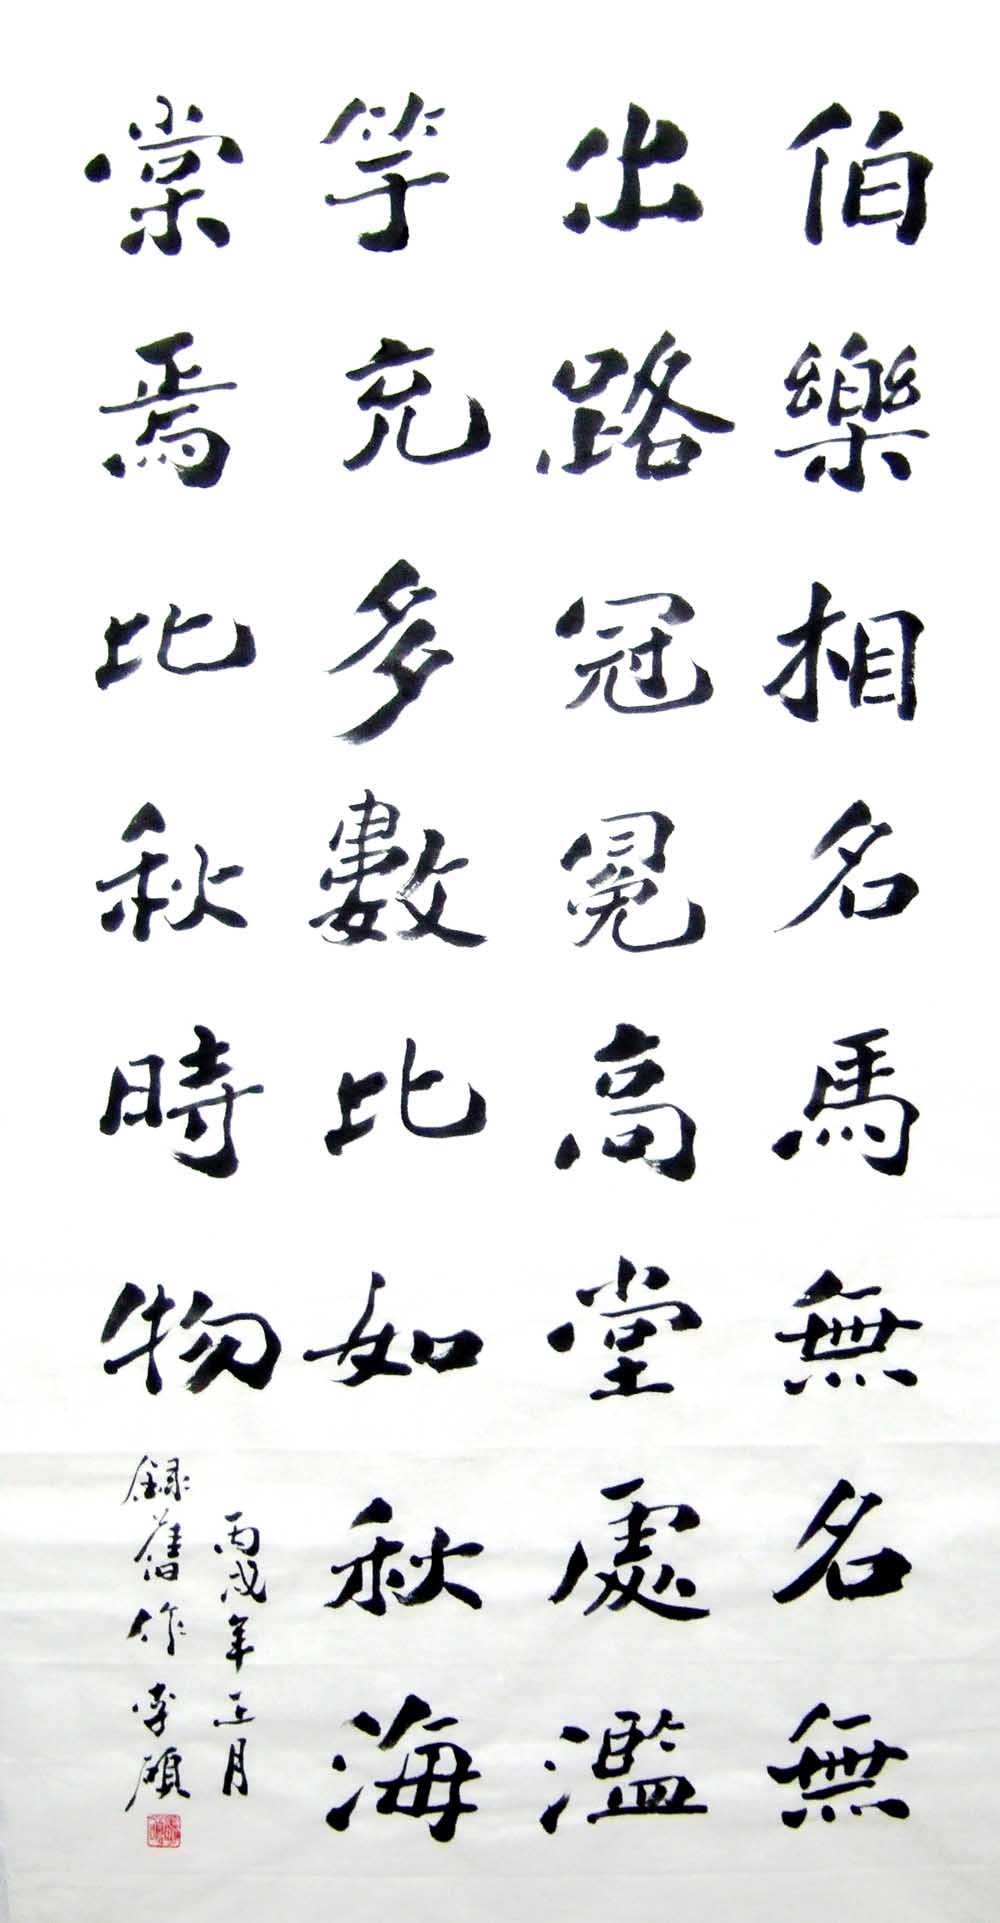 伯樂相名馬無名無
出路冠冕高堂處濫
竽充多數比如秋海
棠焉比秋時物
丙戌年正月
錄舊作李碩